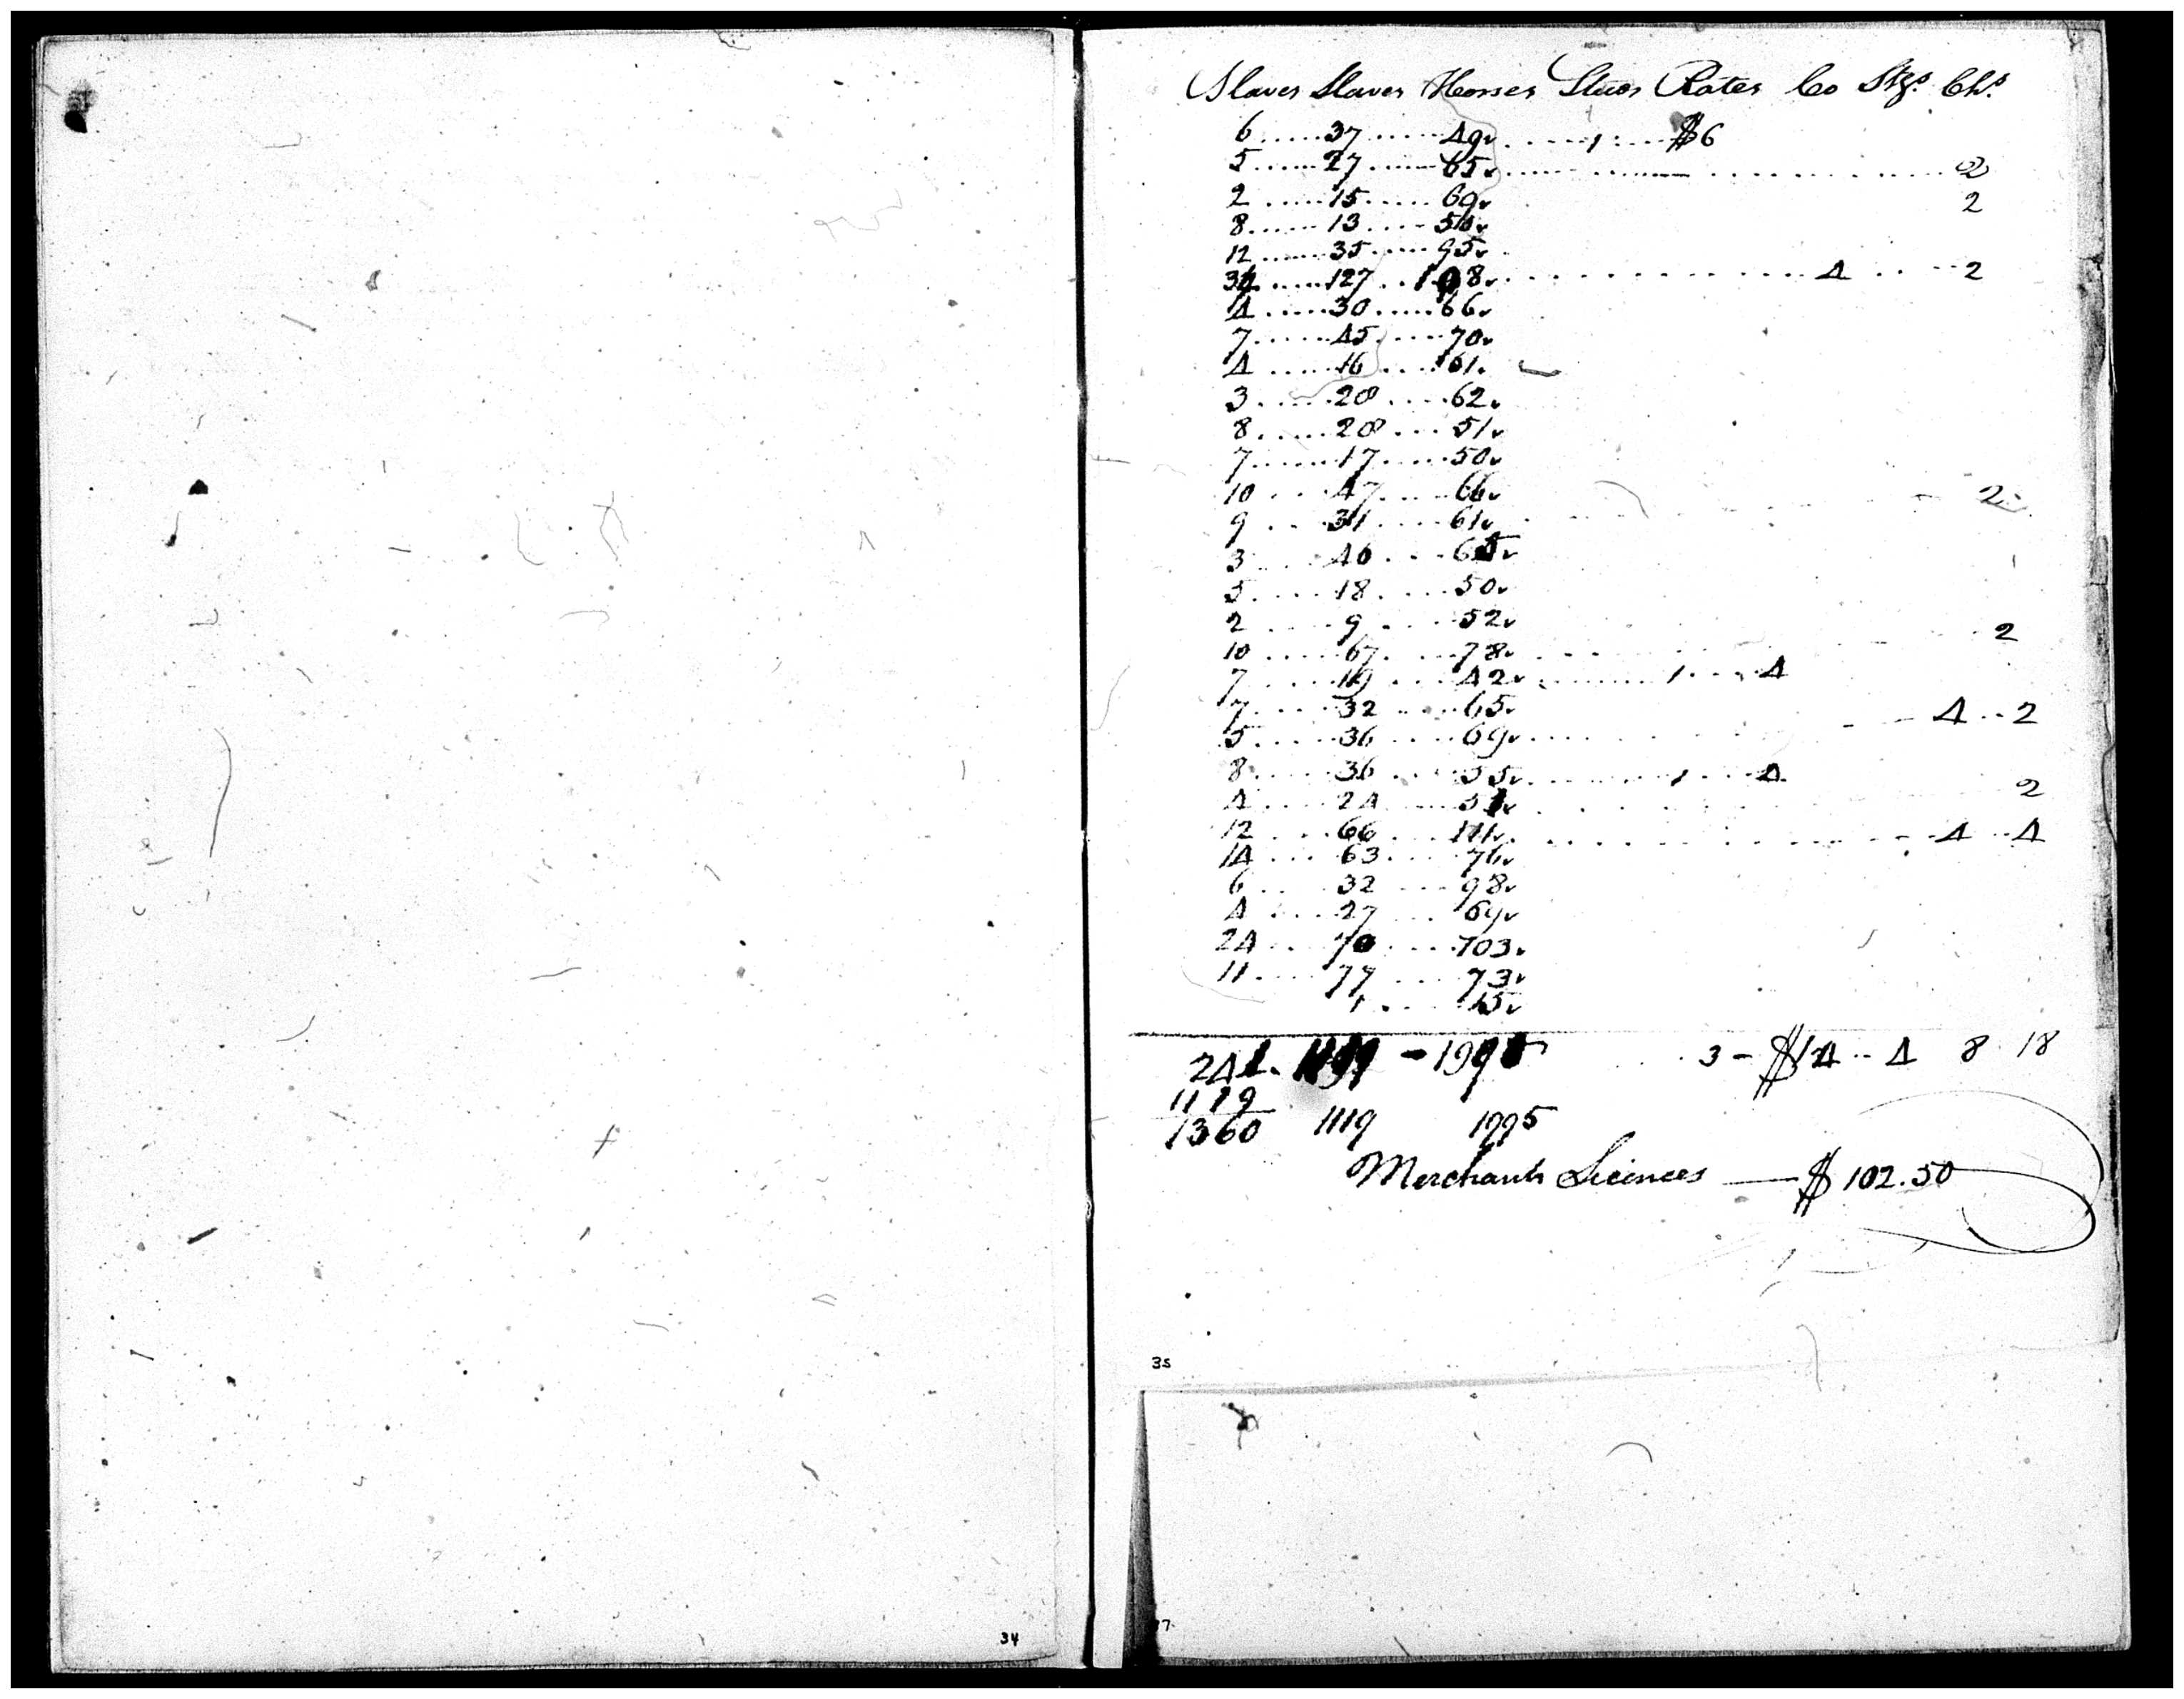 Slaves Slaves Horses Studs Rates Co Stgs. Chs.
6......37......49v.....1.....$6
5......27......65v..............................2
2......15......69v 2
8......13......50v
12......35......95v
34......127...108v..................4......2
4......30......66v
7......45......70v
4......16......61v
3......20......62v
8......20......51v
7......17......50v
10....47......66v 2
9....31......61v
3....40....65v
5....18....50v
2....9....52v 2
10....67....78v
7....19....42v............1.....4
7....32....65v 4..2
5....36....69v
8....36....55v..........1.....4
4....24....51v 2
12....66....111v..................4..4
14....63....76v
6....32....98v
4....27....69v
24....70....103v
11....77....73v
1....15v
241. 1119 - 1995 3 - $14.. 4 8 18
1119
1360 1119 1995
Merchants Licences — $102.50
35
34
37